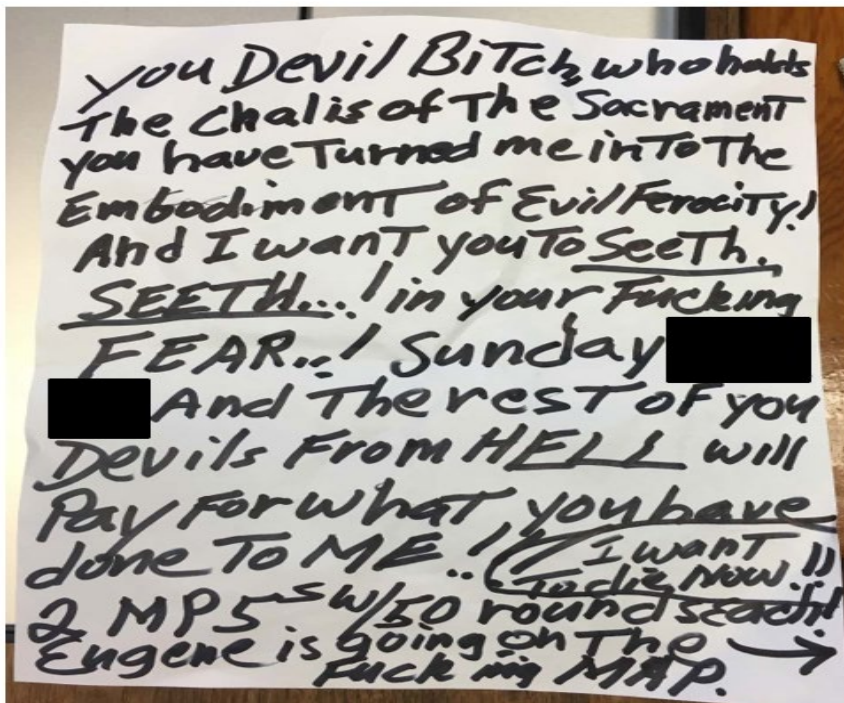 you Devil Bitch, who holds
The Chalis of The Sacrament
you have Turned me inTo The
Embodiment of Evil Ferocity!
And I want you To SeeTh.
SEETH...! in your Fucking
FEAR..! Sunday
And The rest of you
Devils From HELL will
Pay For what you have
done To ME..! I want
To die Now..!!
2 MP5s w/50 rounds each!
Eugene is going on The
Fucking MAP.